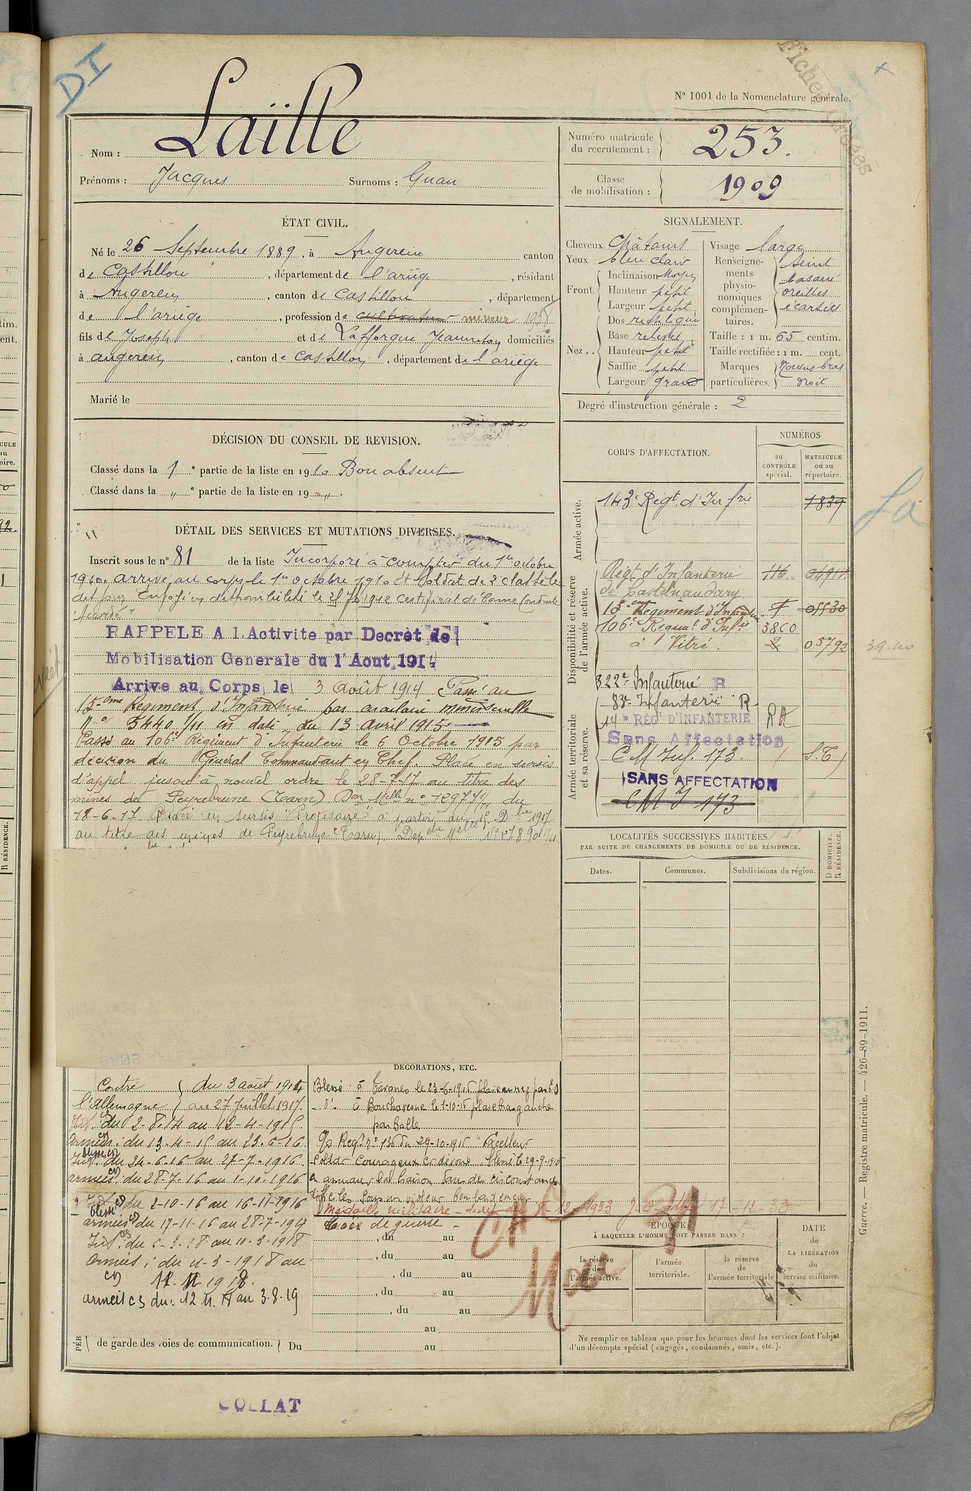 DI
Fiches
N° 1001 de la Nomenclature générale.
Nom : Laïlle
Prénoms : Jacques Surnoms : Guan
Numéro matricule du recrutement : 253.
Classe de mobilisation : 1909
ÉTAT CIVIL.
Né le 26 Septembre 1889, à Augerein, canton
de Castillon, département de l'ariège, résidant
à Augerein, canton de Castillon, département
de l'ariège, profession de cultivateur mineur
fils de Joseph et de Lafforgue Jeanneton domiciliés
à augerein, canton de Castillon, département de l'ariège
Marié le
SIGNALEMENT.
Cheveux Châtains
Yeux bleu clair
Front. Inclinaison Moyen
Hauteur petit
Largeur petit
Nez.. Dos rectiligne
Base relevée
Hauteur petit
Saillie petit
Largeur grand
Visage large
Renseignements physionomiques complémentaires. teint basané oreilles écartées
Taille : 1 m. 65 centim.
Taille rectifiée : 1 m. cent.
Marques particulières. bras droit
Degré d'instruction générale : 2
DÉCISION DU CONSEIL DE REVISION.
Classé dans la 1e partie de la liste en 1910 Bon absent
Classé dans la " e partie de la liste en 19 "
DÉTAIL DES SERVICES ET MUTATIONS DIVERSES.
Inscrit sous le n° 81 de la liste Incorporé à compter du 1er octobre
1910. Arrivé au corps le 1er octobre 1910 et soldat de 2e classe le
dit jour. Envoyé en disponibilité le 1912 certificat de bonne conduite
"Accordé"
RAPPELE A l'Activite par Decret de
Mobilisation Generale du 1 Aout 1914
Arrive au Corps le 3 août 1914 Passé au
15eme Régiment d'Infanterie par circulaire ministerielle
n° 5440 1/11 en date du 13 avril 1915.
Passé au 106e Régiment d'Infanterie le 6 Octobre 1915 par
décision du Général Commandant en Chef. Placé en sursis
d'appel jusqu'à nouvel ordre le 28-7-17 au titre des
mines de Peyrebrune (Tarn) Don Melle n° 129774 du
18-6-17 Placé en sursis "Provisoire" à partir du 15 Dbre 1917
au titre des mines de Peyrebrune (Tarn)
CORPS D'AFFECTATION.
NUMÉROS
au CONTRÔLE spécial.
MATRICULE ou au répertoire.
Armée active.
143e Régt d'Infrie 1839
Disponibilité et réserve de l'armée active.
Régt d'Infanterie de Castelnaudary 116
15eme Régiment d'Infanterie 05530
106e Régiment d'Infie 3860
à Vitré. 05792
Armée territoriale et sa réserve.
322e Infanterie R
83e Infanterie R
14e REG. D'INFANTERIE RA
Sans Affectation
C M Inf. 173 S.T
SANS AFFECTATION
C M I 173
LOCALITÉS SUCCESSIVES HABITÉES
PAR SUITE DE CHANGEMENTS DE DOMICILE OU DE RÉSIDENCE.
Dates. Communes. Subdivisions de région. D DOMICILE. R RÉSIDENCE.
Contre l'Allemagne du 3 août 1914
au 27 Juillet 1917.
Int. du 2-8-14 au 12-4-1915
armées : du 13-4-15 au 23-6-16
Int. du 24-6-16 au 27-7-1916
armées du 28-7-16 au 1-10-1916
Int. du 2-10-16 au 16-11-1916
armées du 17-11-16 au 28-7-1917
armées : du 11-3-1918 au
11-11-1918.
armées du 12.11.18 au 3.8.19
de garde des voies de communication.
DÉCORATIONS, ETC.
Blessé : à Tavannes le 23-6-1916
d° à Bouchavesnes le 1-10-16 plaie main gauche
par balle
Soldat courageux et dévoué. Blessé le 29-9-1916
Médaille militaire
Croix de guerre
, du au
, du au
, du au
, du au
, du au
au
Du au
ÉPOQUE
À LAQUELLE L'HOMME DOIT PASSER DANS :
la réserve de l'armée active.
l'armée territoriale.
la réserve de l'armée territoriale.
DATE DE LA LIBÉRATION du service militaire.
Ne remplir ce tableau que pour les hommes dont les services font l'objet
d'un décompte spécial (engagés, condamnés, omis, etc.).
Guerre. — Registre matricule. — 426-89-1911.
COLLAT